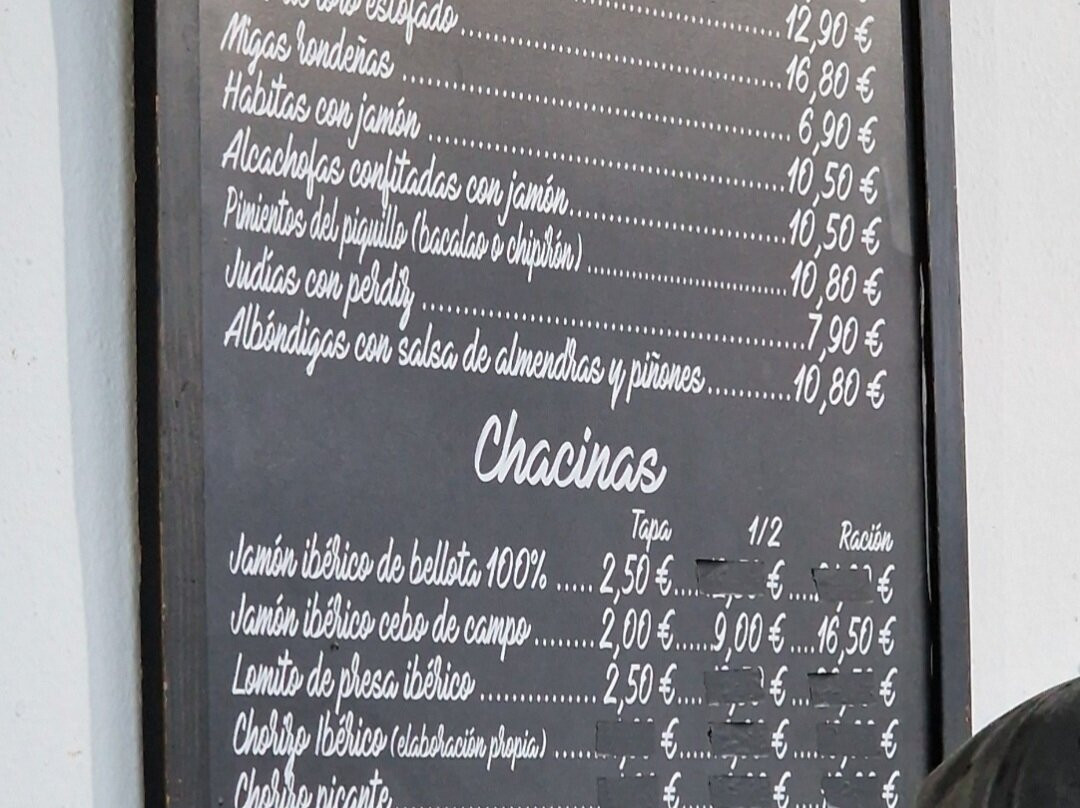 12,90 €
estofado 16,80 €
Migas rondeñas 6,90 €
Habitas con jamón 10,50 €
Alcachofas confitadas con jamón 10,50 €
Pimientos del piquillo (bacalao o chipirón) 10,80 €
Judías con perdiz 7,90 €
Albóndigas con salsa de almendras y piñones 10,80 €
Chacinas
Tapa 1/2 Ración
Jamón ibérico de bellota 100% 2,50 € € €
Jamón ibérico cebo de campo 2,00 € 9,00 € 16,50 €
Lomito de presa ibérico 2,50 € € €
Chorizo Ibérico (elaboración propia) € € €
Chorizo picante € € €